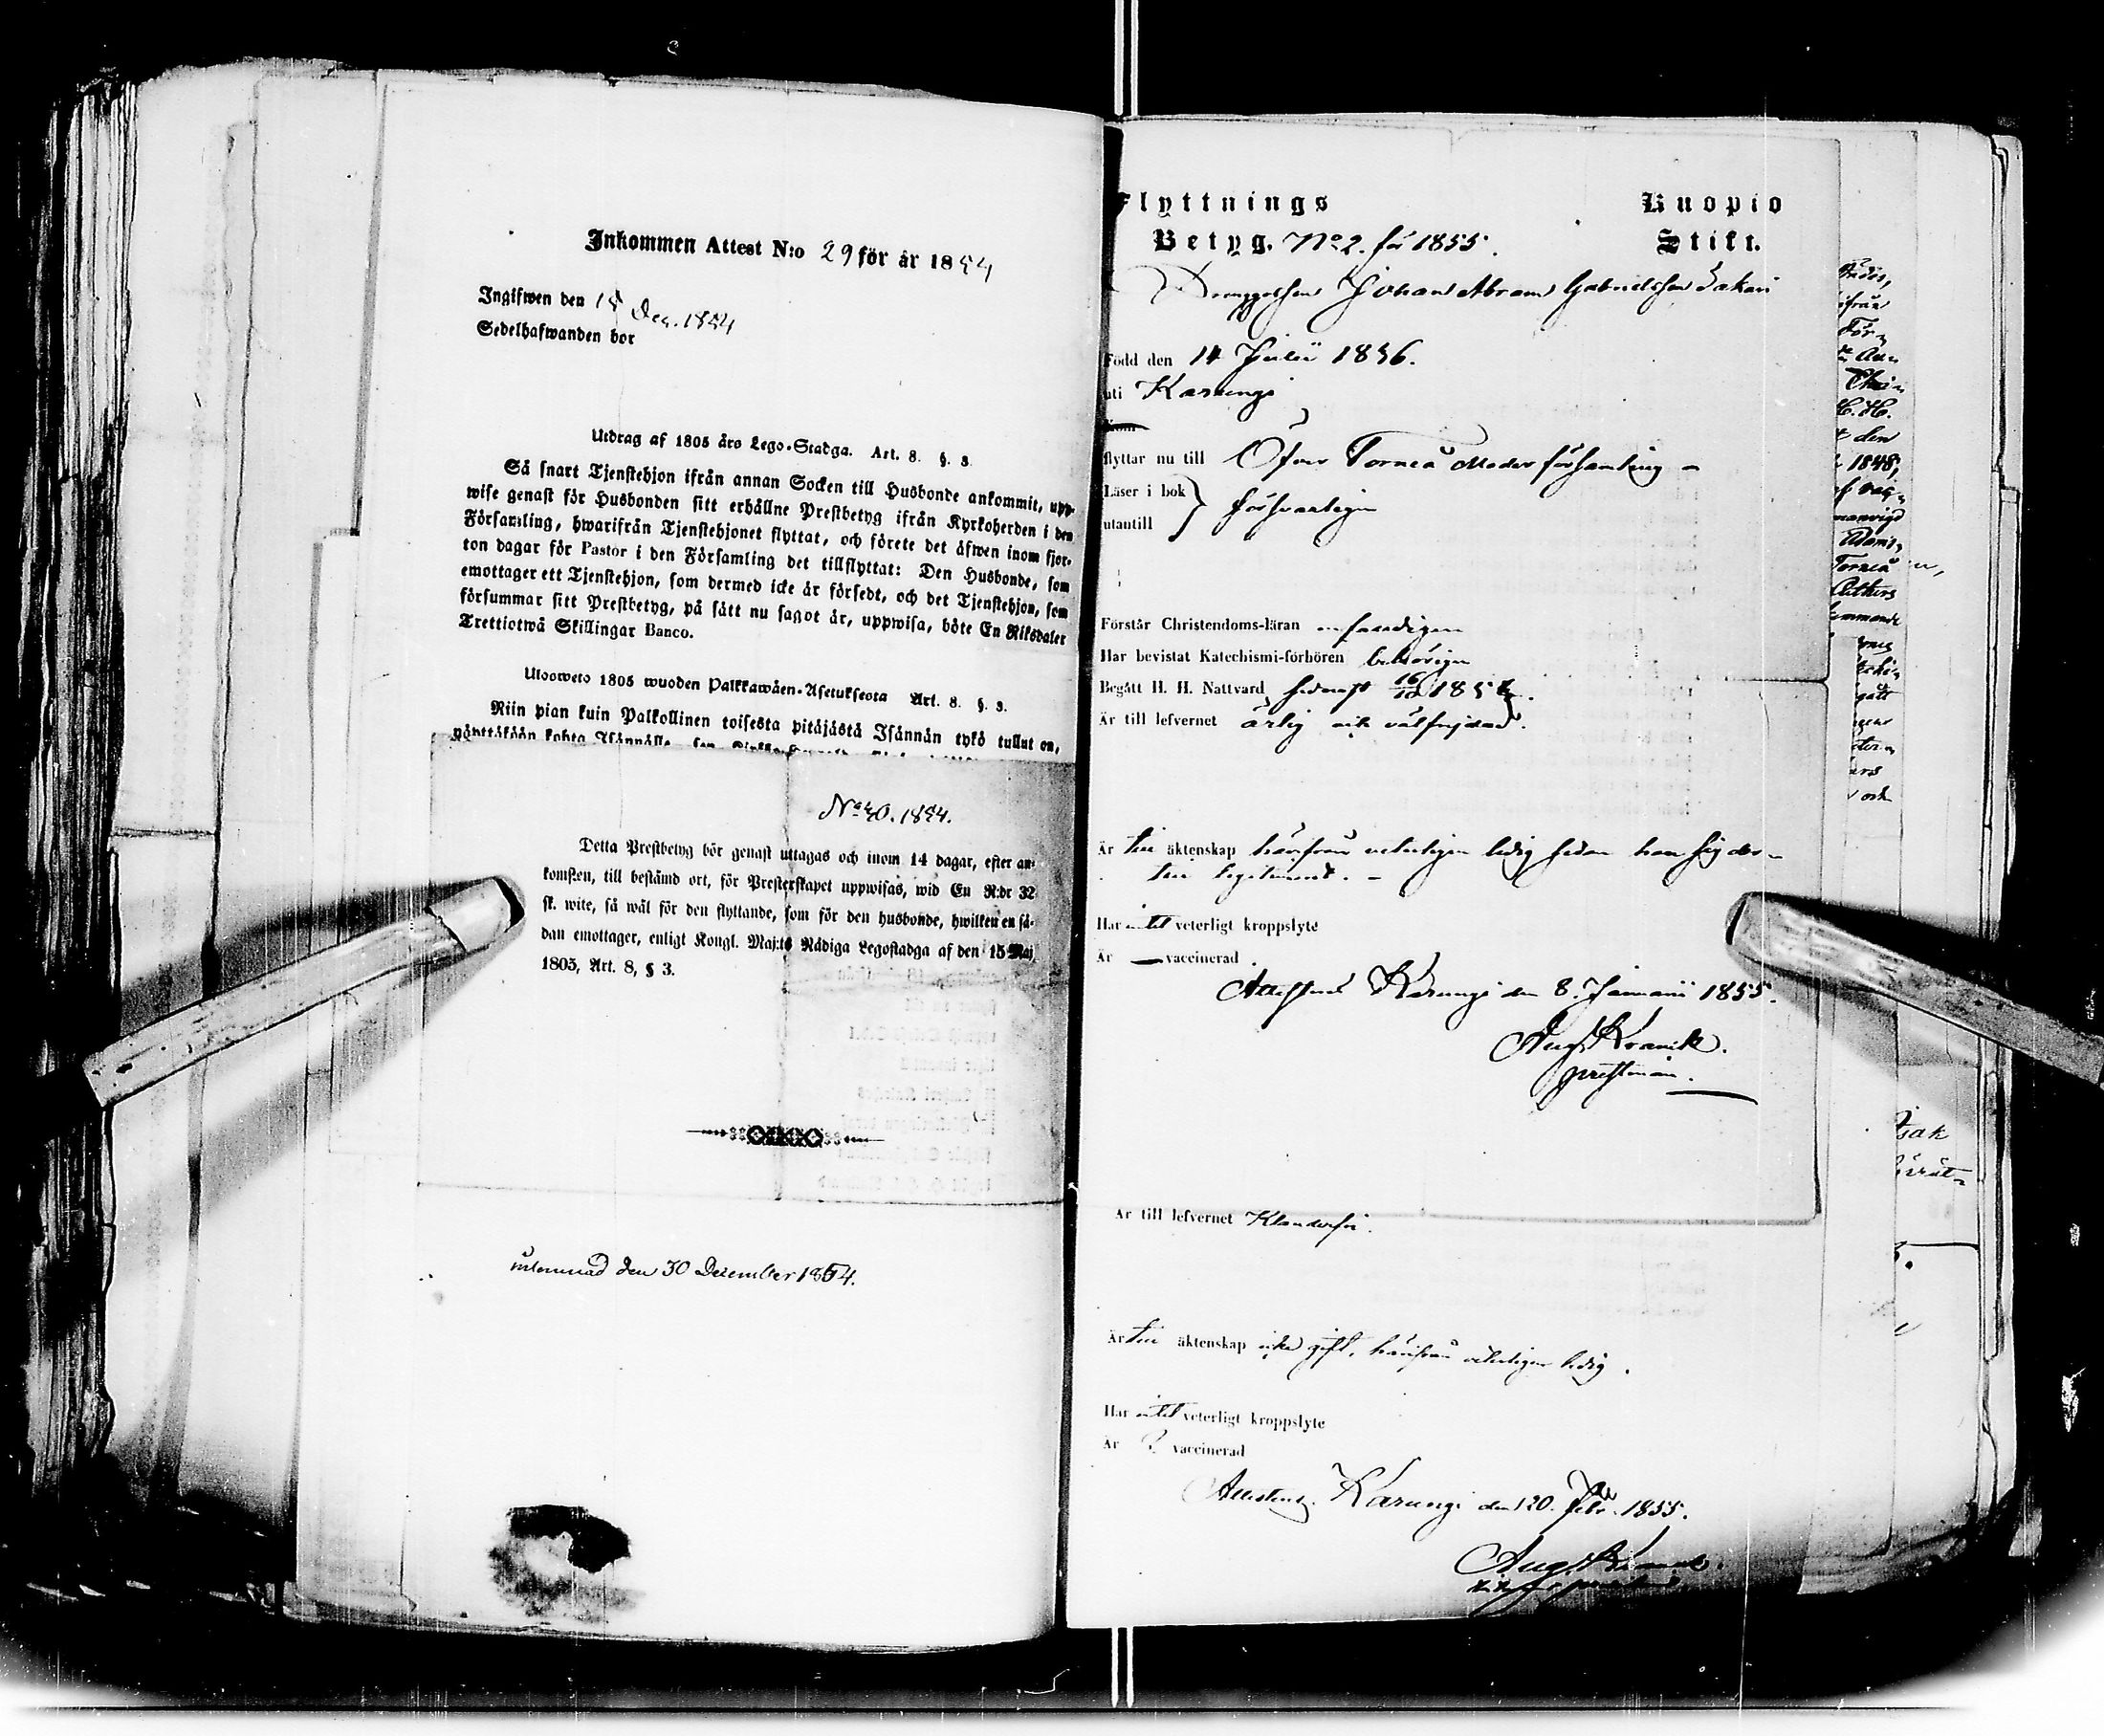 Inkommen Attest N:o 29 för år 1854
Ingifwen den 18 Dec. 1854
Sedelhafwanden bor
Utdrag af 1805 års Lego-Stadga. Art. 8. §. 3.
Så snart Tjenstehjon ifrån annan Socken till Husbonde ankommit, upp-
wise genast för Husbonden sitt erhållne Prestbetyg ifrån Kyrkoherden i den
Församling, hwarifrån Tjenstehjonet flyttat, och förete det äfwen inom fjor-
ton dagar för Pastor i den Församling det tillflyttat: Den Husbonde, som
emottager ett Tjenstehjon, som dermed icke är försedt, och det Tjenstehjon, som
försummar sitt Prestbetyg, på sätt nu sagdt är, uppwisa, böte En Riksdaler
Trettiotwå Skillingar Banco.
Ulosweto 1805 wuoden Palkkawäen-Asetuksesta Art. 8. §. 3.
Niin pian kuin Palkollinen toisesta pitäjästä Isännän tykö tullut on,
No 30. 1854.
Detta Prestbetyg bör genast uttagas och inom 14 dagar, efter an-
komsten, till bestämd ort, för Presterskapet uppwisas, wid En R:dr 32
sk. wite, så wäl för den flyttande, som för den husbonde, hwilken en så-
dan emottager, enligt Kongl. Maj:ts Nådiga Legostadga af den 15 Maj
1805, Art. 8, § 3.
inlemnad den 30 December 1854.
Flyttnings Kuopio
Betyg. No 2. för 1855. Stift.
Johan Abram Gabrielsson
Född den 14 Julii 1836.
uti Karungi
Kom
flyttar nu till Öfver Torneå Moderförsamling
Läser i bok
utantill försvarligen
Förstår Christendoms-läran enfaldigen
Har bevistat Katechismi-förhören behörigen
Begått H. H. Nattvard sednast 16/10 1854.
Är till lefvernet ärlig och välfrejdad.
Är till äktenskap härifrån veterligen ledig sedan han sig der-
till legitimerat.
Har intet veterligt kroppslyte
Är vaccinerad
Attesterad Karungi den 8. Januarii 1855.
Aug. Kranck.
prestman.
Är till lefvernet Klanderfri.
Är till äktenskap icke gift, härifrån veterligen ledig.
Har intet veterligt kroppslyte
Är vaccinerad
Attesteras. Karungi den 20. Febr. 1855.
Aug. Kranck.
1848,
Adams
Torneå
Isak